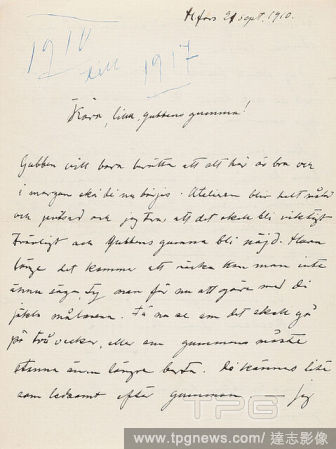 H:fors 21 sept. 1910.
1910
till
1917
Kära, lilla, Gubbens gumma!
Gubben vill bara berätta att allt här är bra och
i morgon ska bli nu börjas. Atelieren blir helt
och och jag tror, att det skall bli riktigt
trevligt och Gubbens gumma bli nöjd. Huru
länge det kommer att räcka kan man inte
ännu säga, ty man får nu att göra med di
målarena. Få nu se om det skall gå
på två veckor, eller om gumman måste
stanna ännu längre borta. Då kännes lite
som ledsamt efter gumman — jag
TPG
www.tpgnews.com/ 達志影像